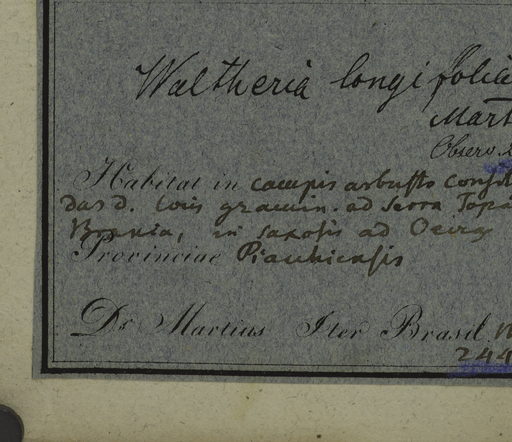 Waltheria longifolia
Mart
Observ.
Habitat in campis arbustis consit
das d. locis gramin. ad Serra Topi
in saxosis ad Oeiras
Provinciae Piauhiensis
Dr Martius Iter Brasil. N
244